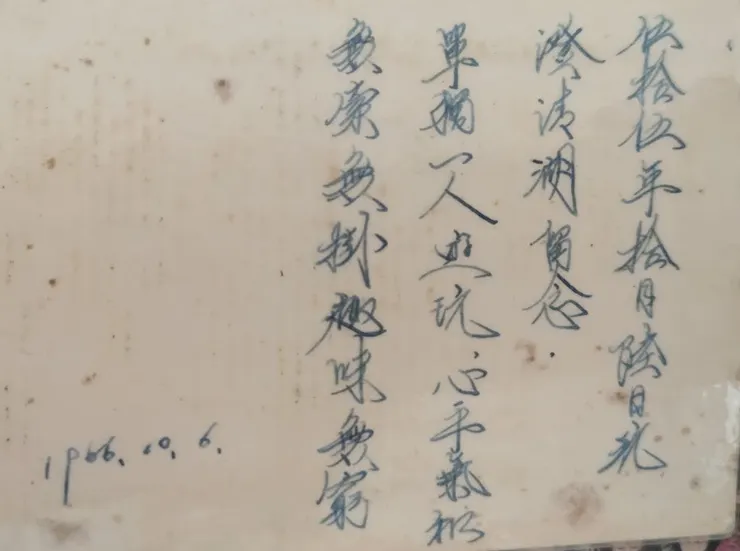 伍拾伍年拾月陸日於
澄清湖留念.
單獨一人遊玩心平氣和
無牽無掛趣味無窮
1966.10.6.